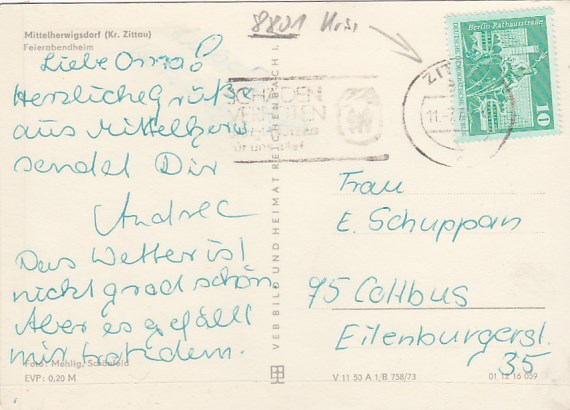 Mittelherwigsdorf (Kr. Zittau)
Feierabendheim
8801
Liebe Oma!
Herzliche Grüße
aus Mittelherw
sendet Dir
Andrec
Das Wetter ist
nicht grad schön
Aber es gefällt
mir trotzdem.
Foto: Mehlig, Schönfeld
EVP: 0,20 M
VEB BILD UND HEIMAT REICHENBACH I.
SCHÄDEN
VERHÜTEN
Berlin-Rathausstraße
10
ZIT
11.
Frau
E. Schuppan
75 Cottbus
Eilenburgerst.
35
V 11 50 A 1/B 758/73
01 12 16 039